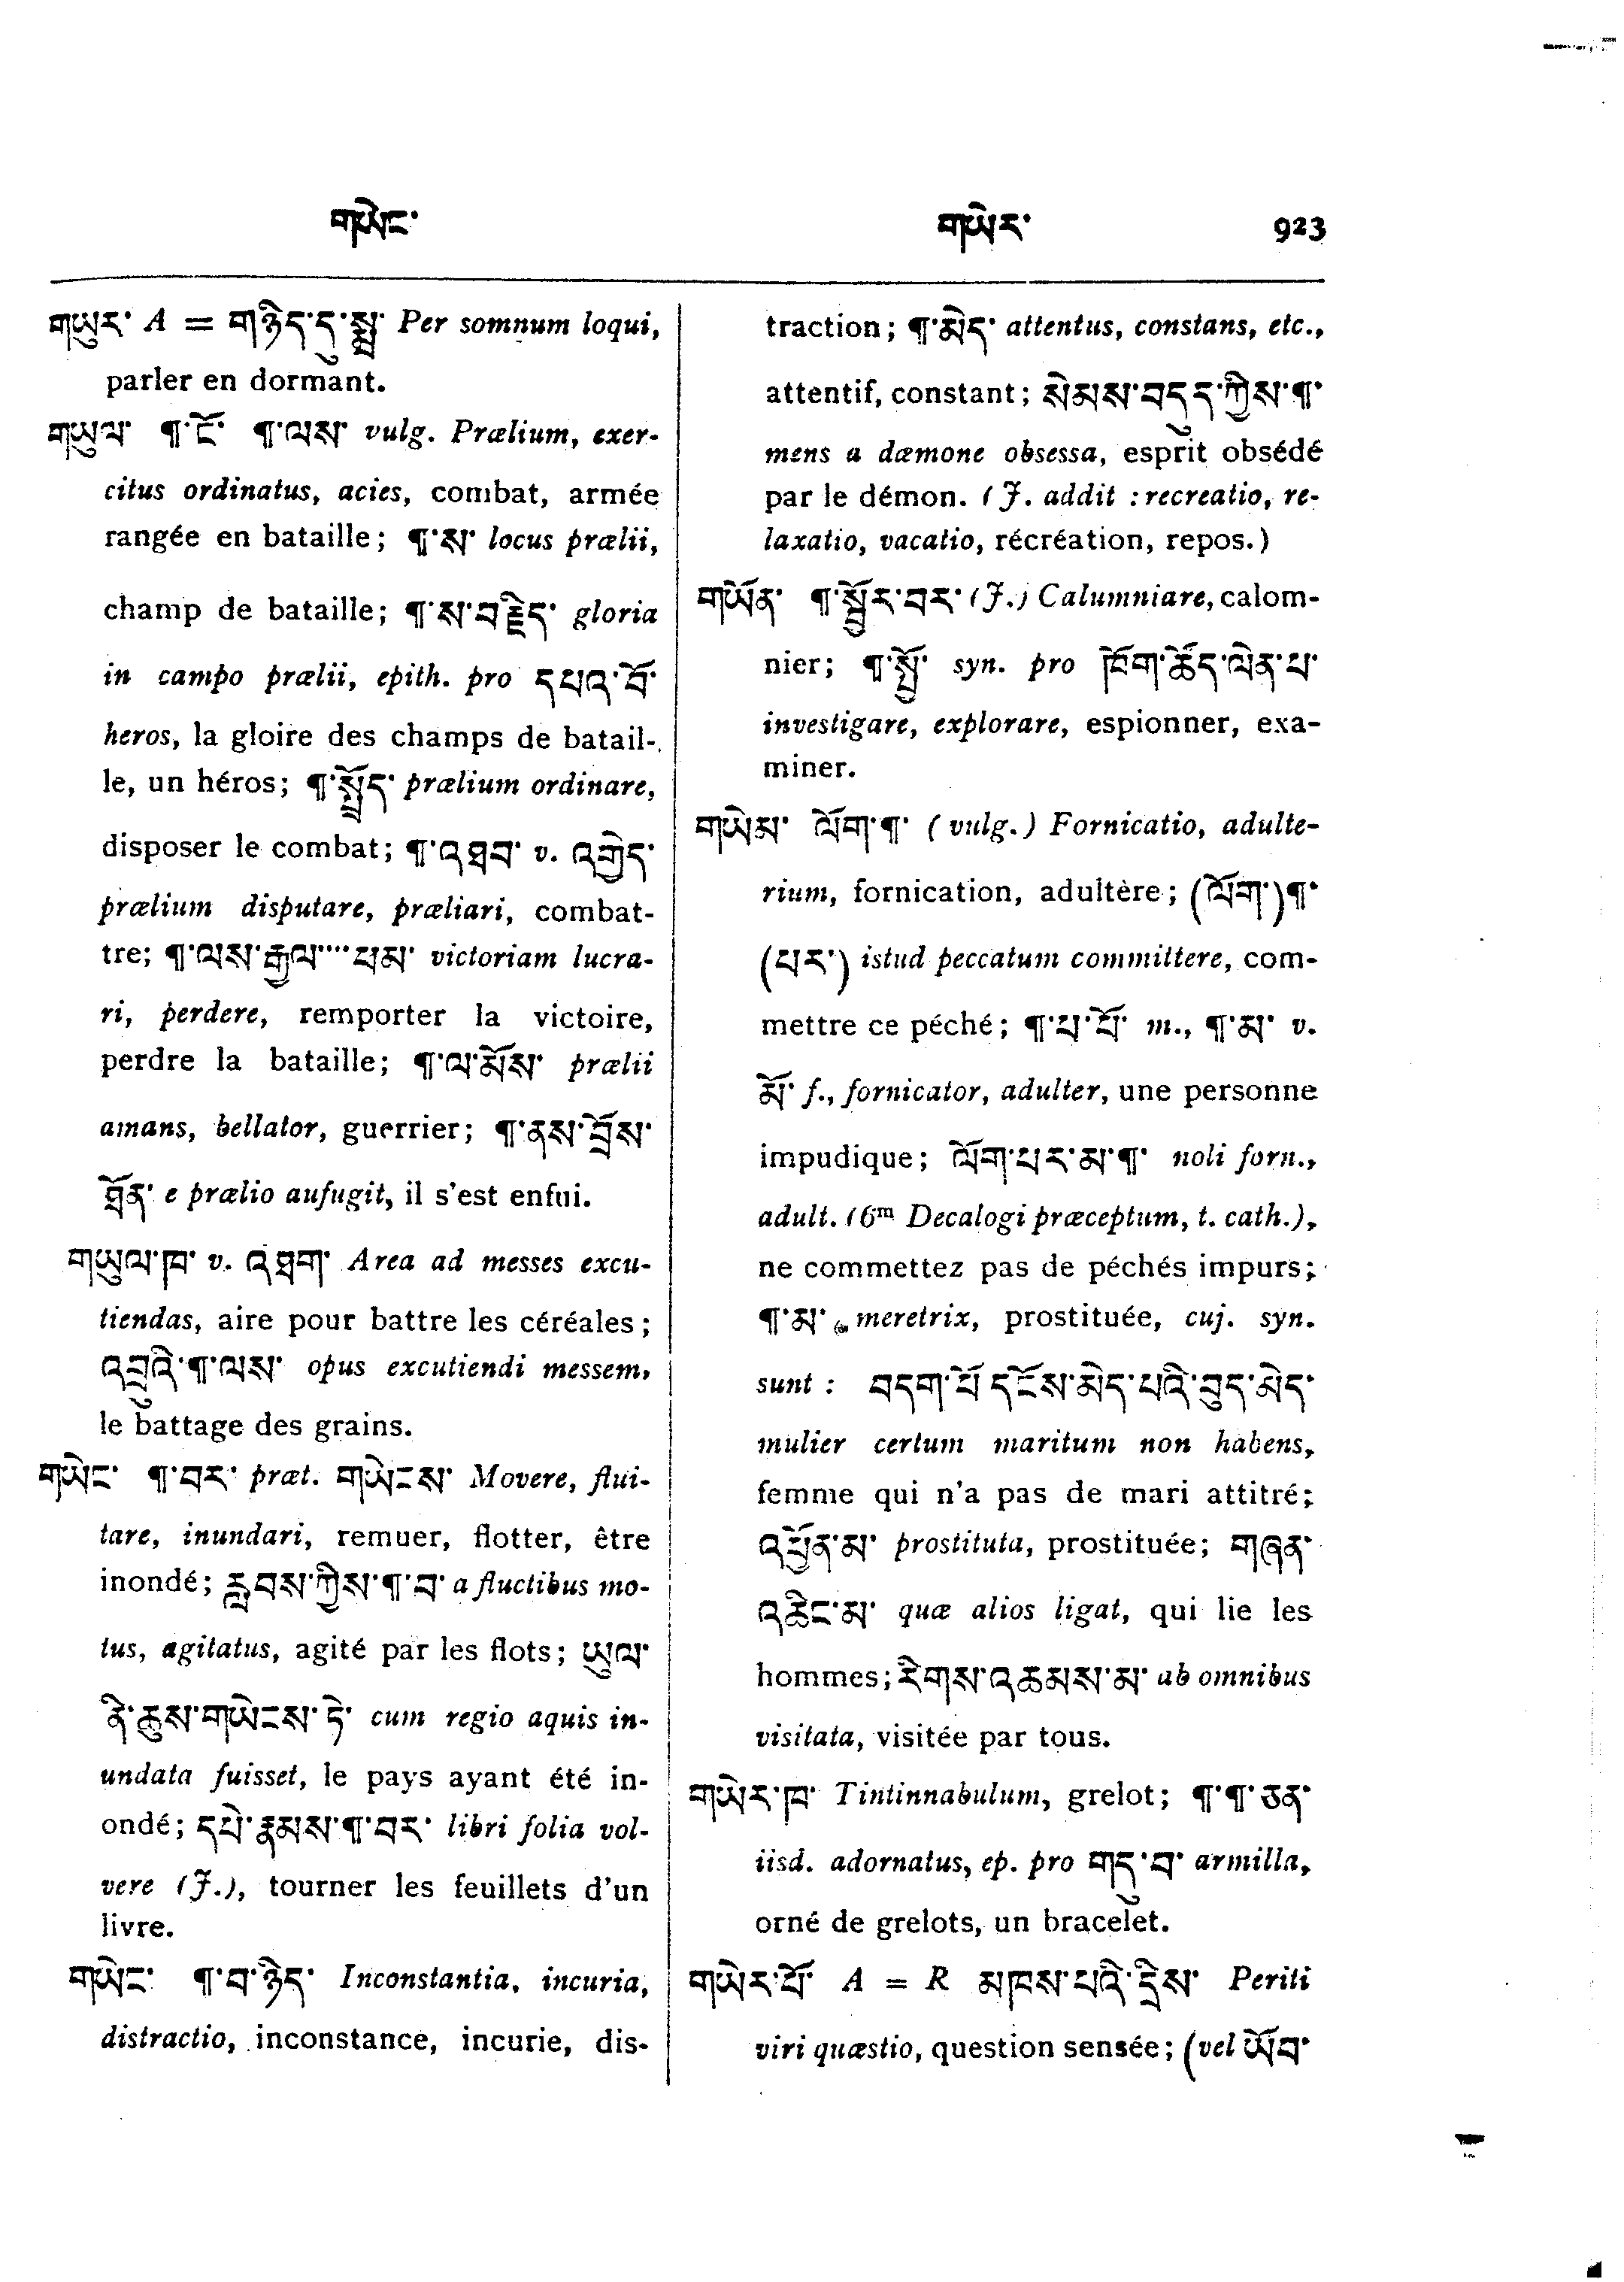 གཡེང་
གཡེར་ 923
གཡུར་ A = གཉིད་དུ་སྨྲ་ Per somnum loqui,
parler en dormant.
གཡུལ་ ¶་ངོ་ ¶་ལས་ vulg. Prælium, exer-
citus ordinatus, acies, combat, armée
rangée en bataille; ¶་ས་ locus prælii,
champ de bataille; ¶་ས་བརྗིད་ gloria
in campo prælii, epith. pro དཔའ་བོ་
heros, la gloire des champs de batail-
le, un héros; ¶་སྤྲོད་ prælium ordinare,
disposer le combat; ¶་འཐབ་ v. འགྱེད་
prælium disputare, præliari, combat-
tre; ¶་ལས་རྒྱལ་····ཕམ་ victoriam lucra-
ri, perdere, remporter la victoire,
perdre la bataille; ¶་ལ་མོས་ prælii
amans, bellator, guerrier; ¶་ནས་བྲོས་
ཐོན་ e prælio aufugit, il s'est enfui.
གཡུལ་ཁ་ v. འཐག་ Area ad messes excu-
tiendas, aire pour battre les céréales;
འབྲུའི་¶་ལས་ opus excutiendi messem,
le battage des grains.
གཡེང་ ¶་བར་ præt. གཡེངས་ Movere, flui-
tare, inundari, remuer, flotter, être
inondé; རླབས་ཀྱིས་¶་བ་ a fluctibus mo-
tus, agitatus, agité par les flots; ཡུལ་
ནི་ཆུས་གཡེངས་ཏེ་ cum regio aquis in-
undata fuisset, le pays ayant été in-
ondé; དཔེ་རྣམས་¶་བར་ libri folia vol-
vere (J.), tourner les feuillets d'un
livre.
གཡེང་ ¶་བ་ཉིད་ Inconstantia, incuria,
distractio, inconstance, incurie, dis-
traction; ¶་མེད་ attentus, constans, etc.,
attentif, constant; སེམས་བདུད་ཀྱིས་¶་
mens a dæmone obsessa, esprit obsédé
par le démon. (J. addit : recreatio, re-
laxatio, vacatio, récréation, repos.)
གཡོན་ ¶་སྦྱོར་བར་ (J.) Calumniare, calom-
nier; ¶་སྤྱོ་ syn. pro ཁོག་ཚོད་ལེན་པ་
investigare, explorare, espionner, exa-
miner.
གཡེམ་ ལོག་¶་ (vulg.) Fornicatio, adulte-
rium, fornication, adultère; (ལོག་)¶་
(པར་) istud peccatum committere, com-
mettre ce péché; ¶་པ་པོ་ m., ¶་མ་ v.
མོ་ f., fornicator, adulter, une personne
impudique; ལོག་པར་མ་¶་ noli forn.,
adult. (6m Decalogi præceptum, t. cath.),
ne commettez pas de péchés impurs;
¶་མ་ meretrix, prostituée, cuj. syn.
sunt : བདག་པོ་དངོས་མེད་པའི་བུད་མེད་
mulier certum maritum non habens,
femme qui n'a pas de mari attitré;
འཕྱོན་མ་ prostituta, prostituée; གཞན་
འཆིང་མ་ quæ alios ligat, qui lie les
hommes; རིགས་འཆམས་མ་ ab omnibus
visitata, visitée par tous.
གཡེར་ཁ་ Tintinnabulum, grelot; ¶་¶་ཅན་
iisd. adornatus, ep. pro གདུ་བ་ armilla,
orné de grelots, un bracelet.
གཡེར་པོ་ A = R མཁས་པའི་དྲིས་ Periti
viri quæstio, question sensée; (vel ཡོབ་